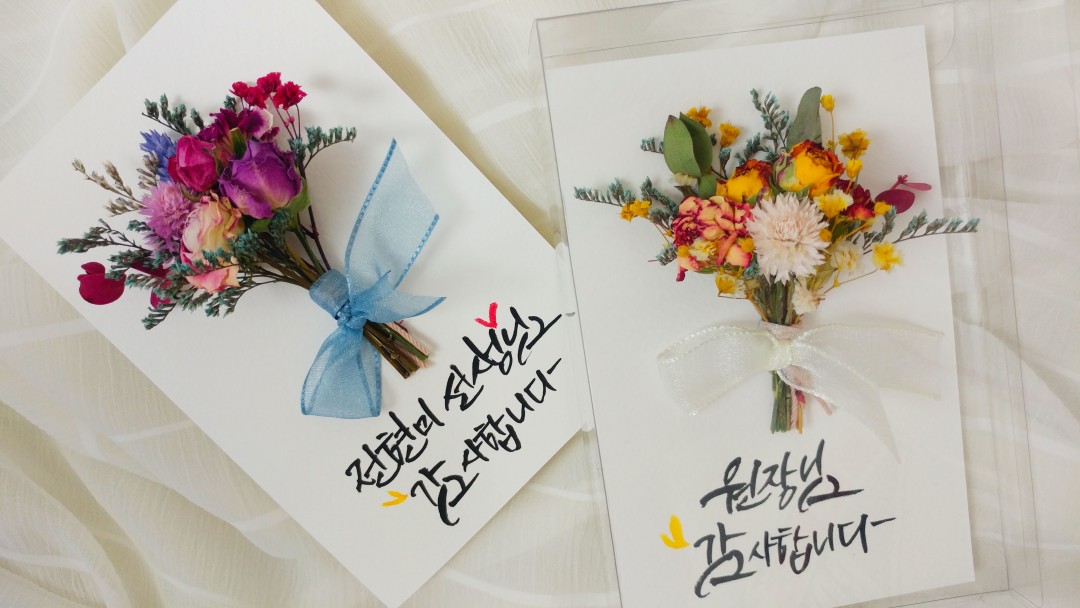 전현미 선생님
감사합니다
원장님
감사합니다